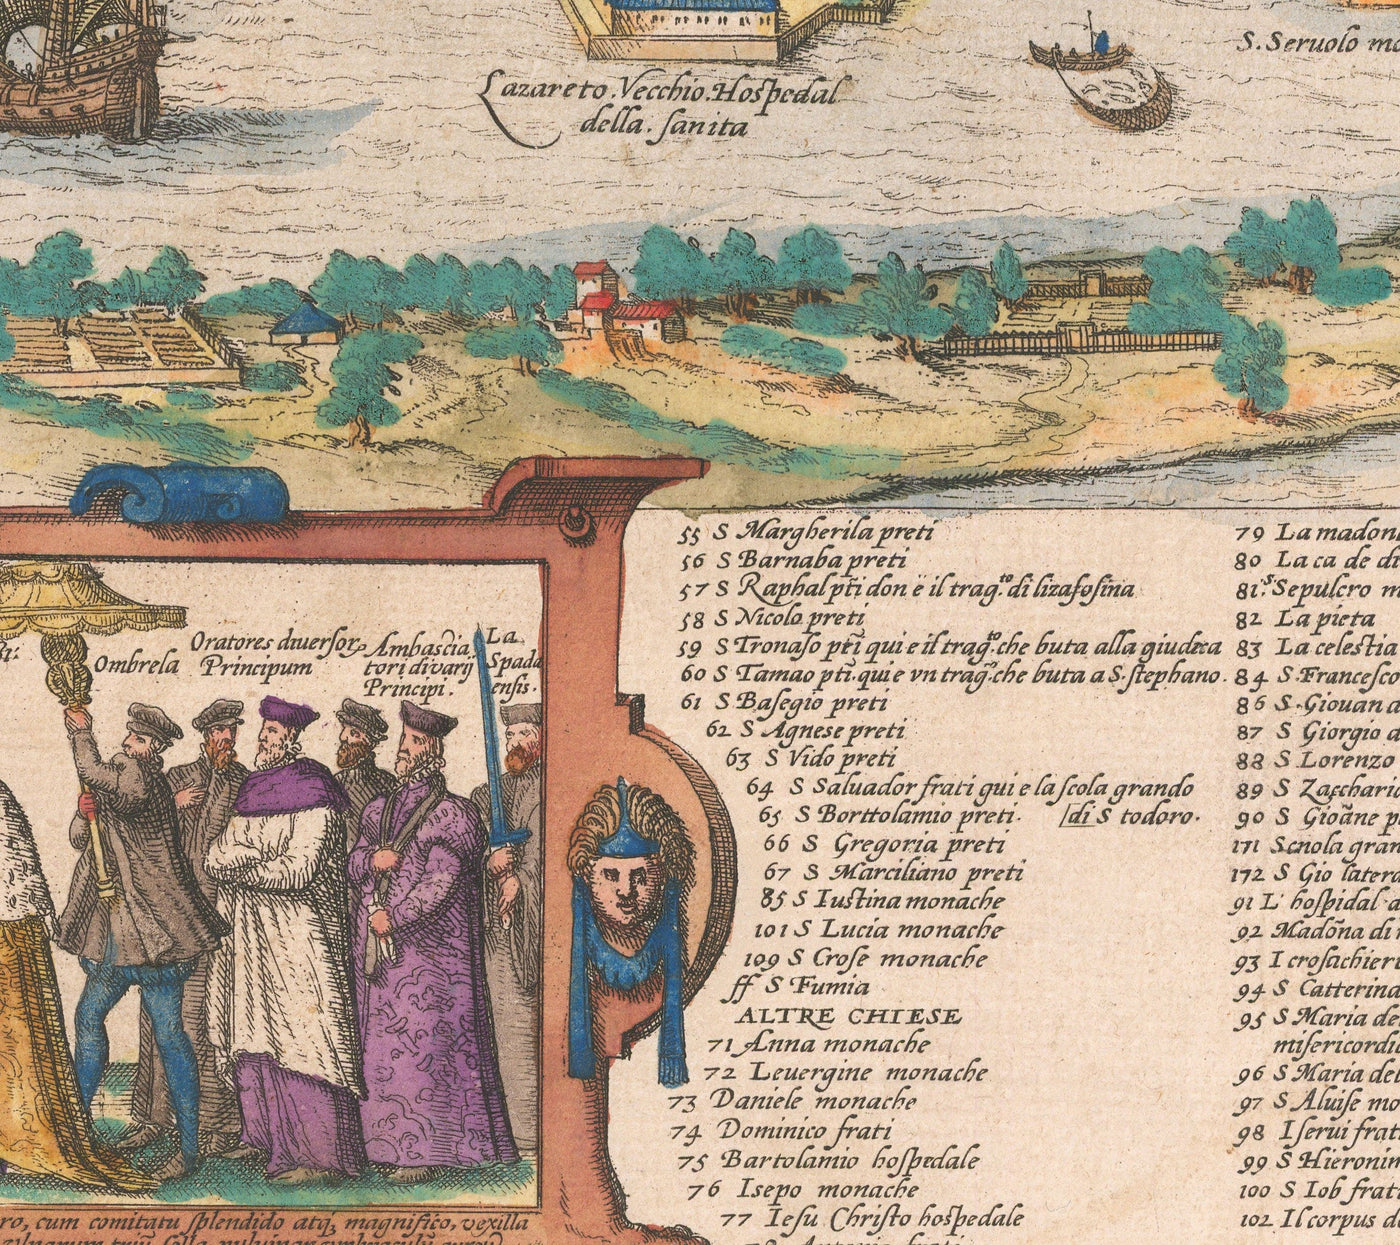 S. Seruolo
Lazareto. Vecchio. Hospedal
della. ſanita
Ombrela
Oratores diuersor.
Principum
Ambascia
tori di varij
Principi.
La
Spada
ensis.
ro, cum comitatu ſplendido atq; magnifico, vexilla
55 S Margherila preti
56 S Barnaba preti
57 S Raphal pti don e il trag.to di lizafoſina
58 S Nicolo preti
59 S Tronaſo pti qui e il trag.to che buta alla giudeca
60 S Tamao pti. qui e vn trag.to che buta a S. ſtephano.
61 S Baſegio preti
62 S Agnese preti
63 S Vido preti
64 S Saluador frati qui e la ſcola grando
di S todoro.
65 S Borttolamio preti.
66 S Gregoria preti
67 S Marciliano preti
85 S Iuſtina monache
101 S Lucia monache
109 S Croſe monache
ff S Fumia
ALTRE CHIESE
71 Anna monache
72 Leuergine monache
73 Daniele monache
74 Dominico frati
75 Bartolamio hoſpedale
76 Isepo monache
77 Ieſu Chriſto hoſpedale
79 La madon
80 La ca de di
81 S Sepulcro m
82 La pieta
83 La celeſtia
84 S. Franceſco
86 S. Giouan
87 S Giorgio
88 S Lorenzo
89 S Zaccharia
90 S Gioãne p
171 Scuola gran
172 S Gio latera
91 L' hoſpidal
92 Madõna di
93 I croſachieri
94 S Catterina
95 S Maria de
miſericordia
96 S Maria del
97 S Aluiſe mo
98 I ſerui frati
99 S Hieronim
100 S Iob frati
102 Il corpus d